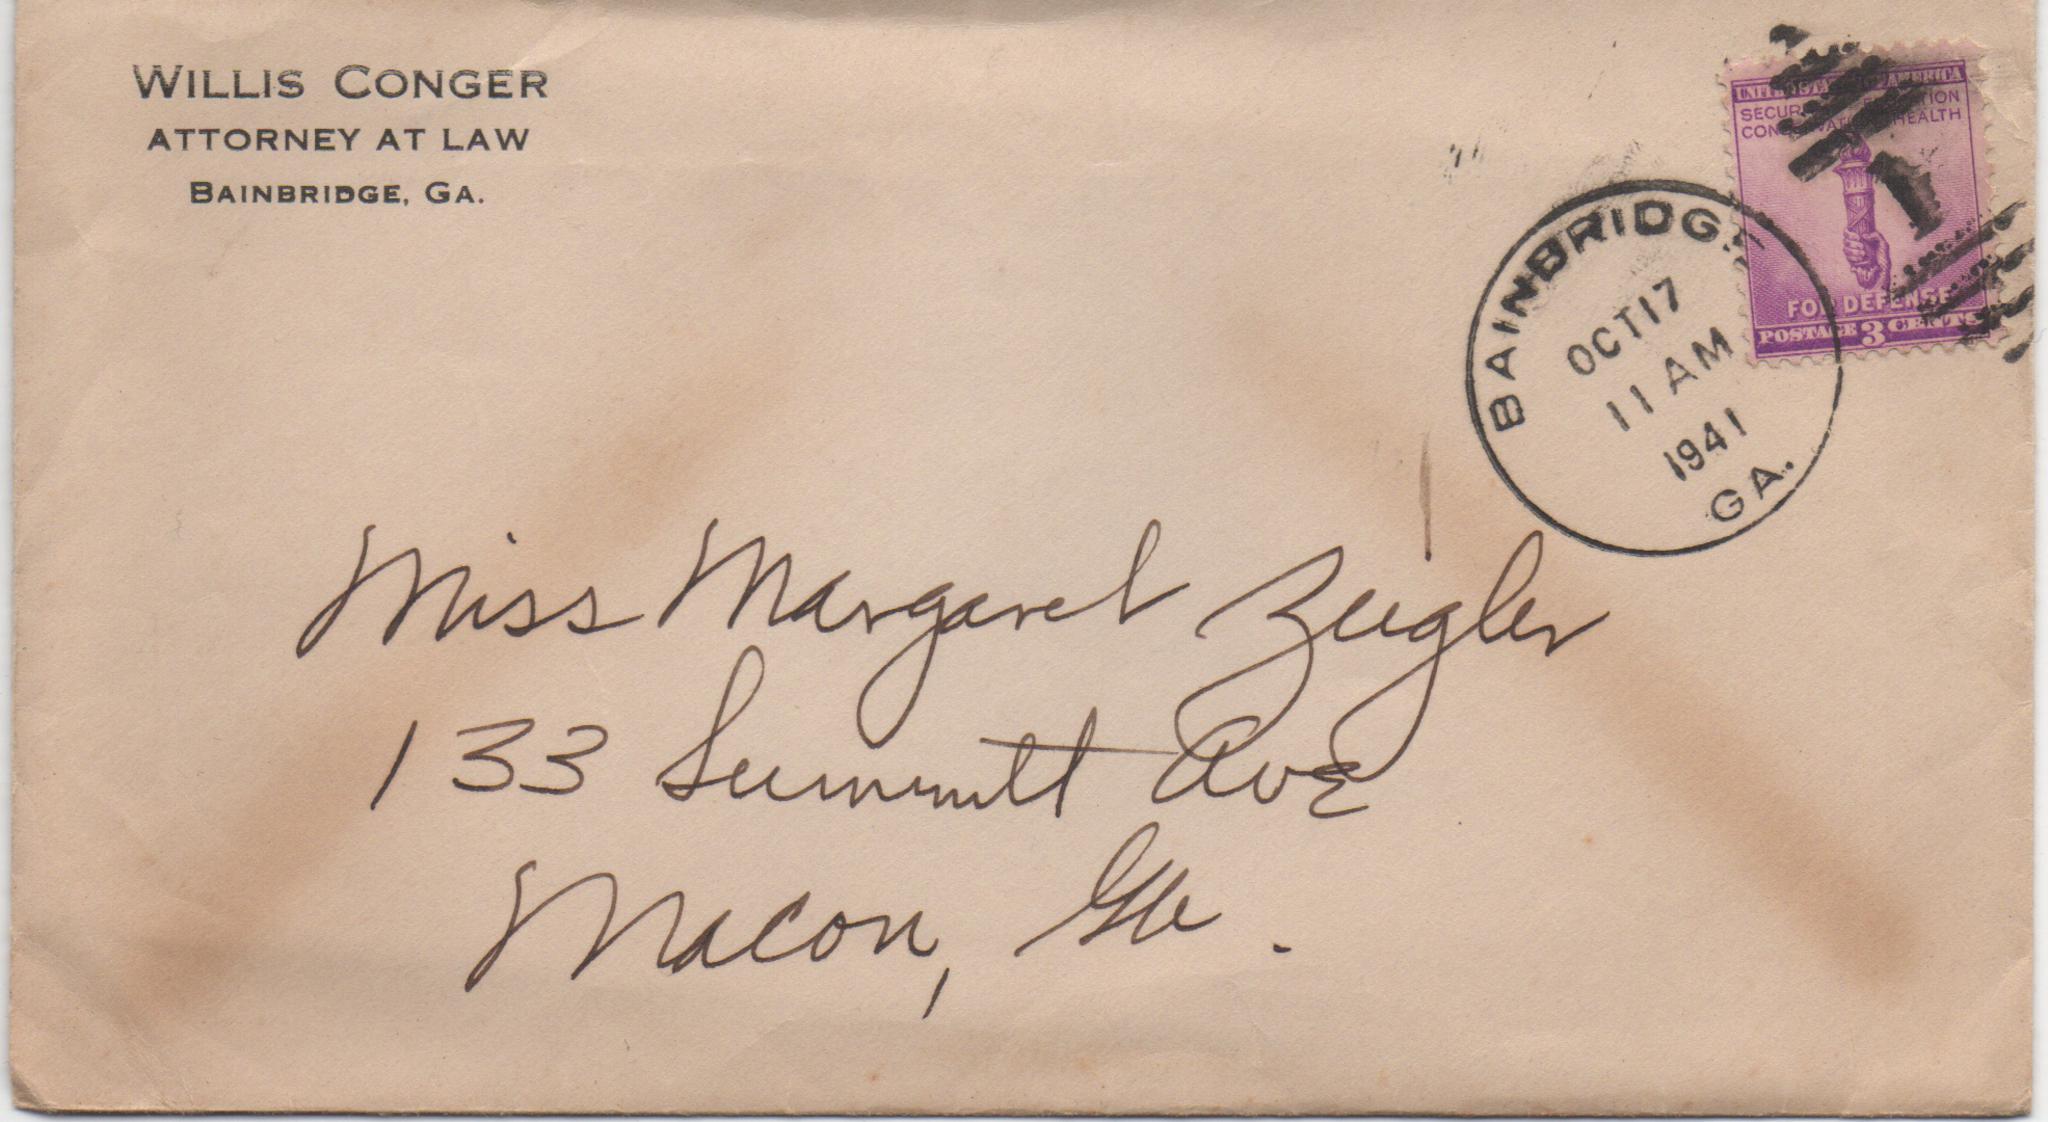 WILLIS CONGER
ATTORNEY AT LAW
BAINBRIDGE, GA.
UNITED STATES OF AMERICA
SECURITY EDUCATION
CONSERVATION HEALTH
FOR DEFENSE
POSTAGE 3 CENTS
1
BAINBRIDGE
OCT 17
11 AM
1941
GA.
Miss Margaret Zeigler
133 Summitt Ave
Macon, Ga.